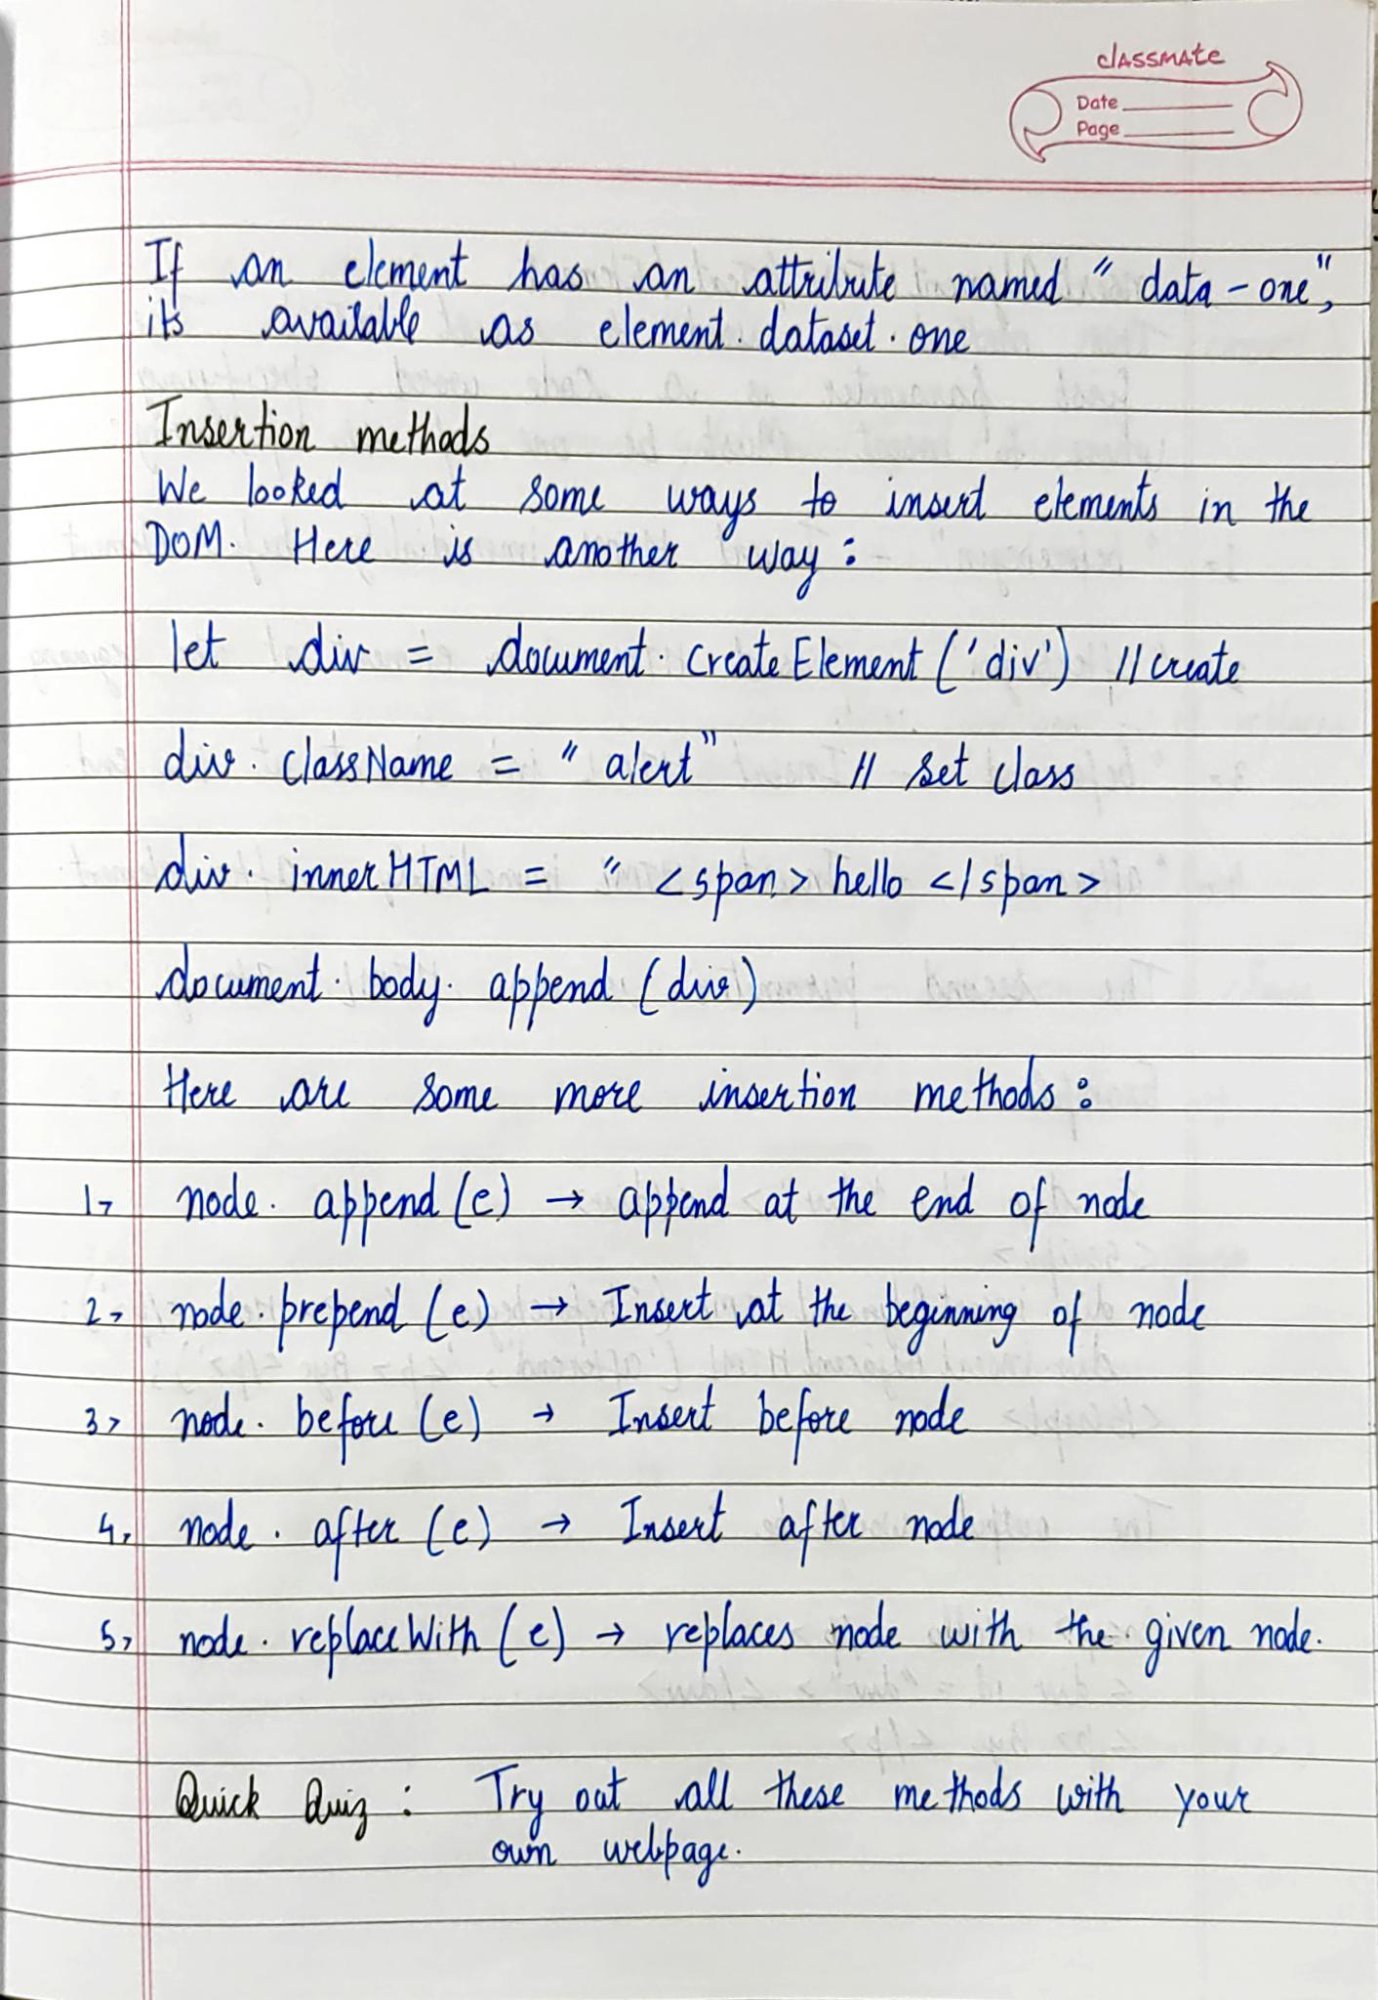 classmate
Date
Page
If an element has an attribute named "data-one",
its available as element.dataset.one
Insertion methods
We looked at some ways to insert elements in the
DOM. Here is another way:
let div = document.createElement('div') // create
div.className = "alert" // set class
div.innerHTML = "<span>hello</span>
document.body.append(div)
Here are some more insertion methods:
1> node.append(e) → append at the end of node
2> node.prepend(e) → Insert at the beginning of node
3> node.before(e) → Insert before node
4> node.after(e) → Insert after node
5> node.replaceWith(e) → replaces node with the given node.
Quick Quiz: Try out all these methods with your
own webpage.